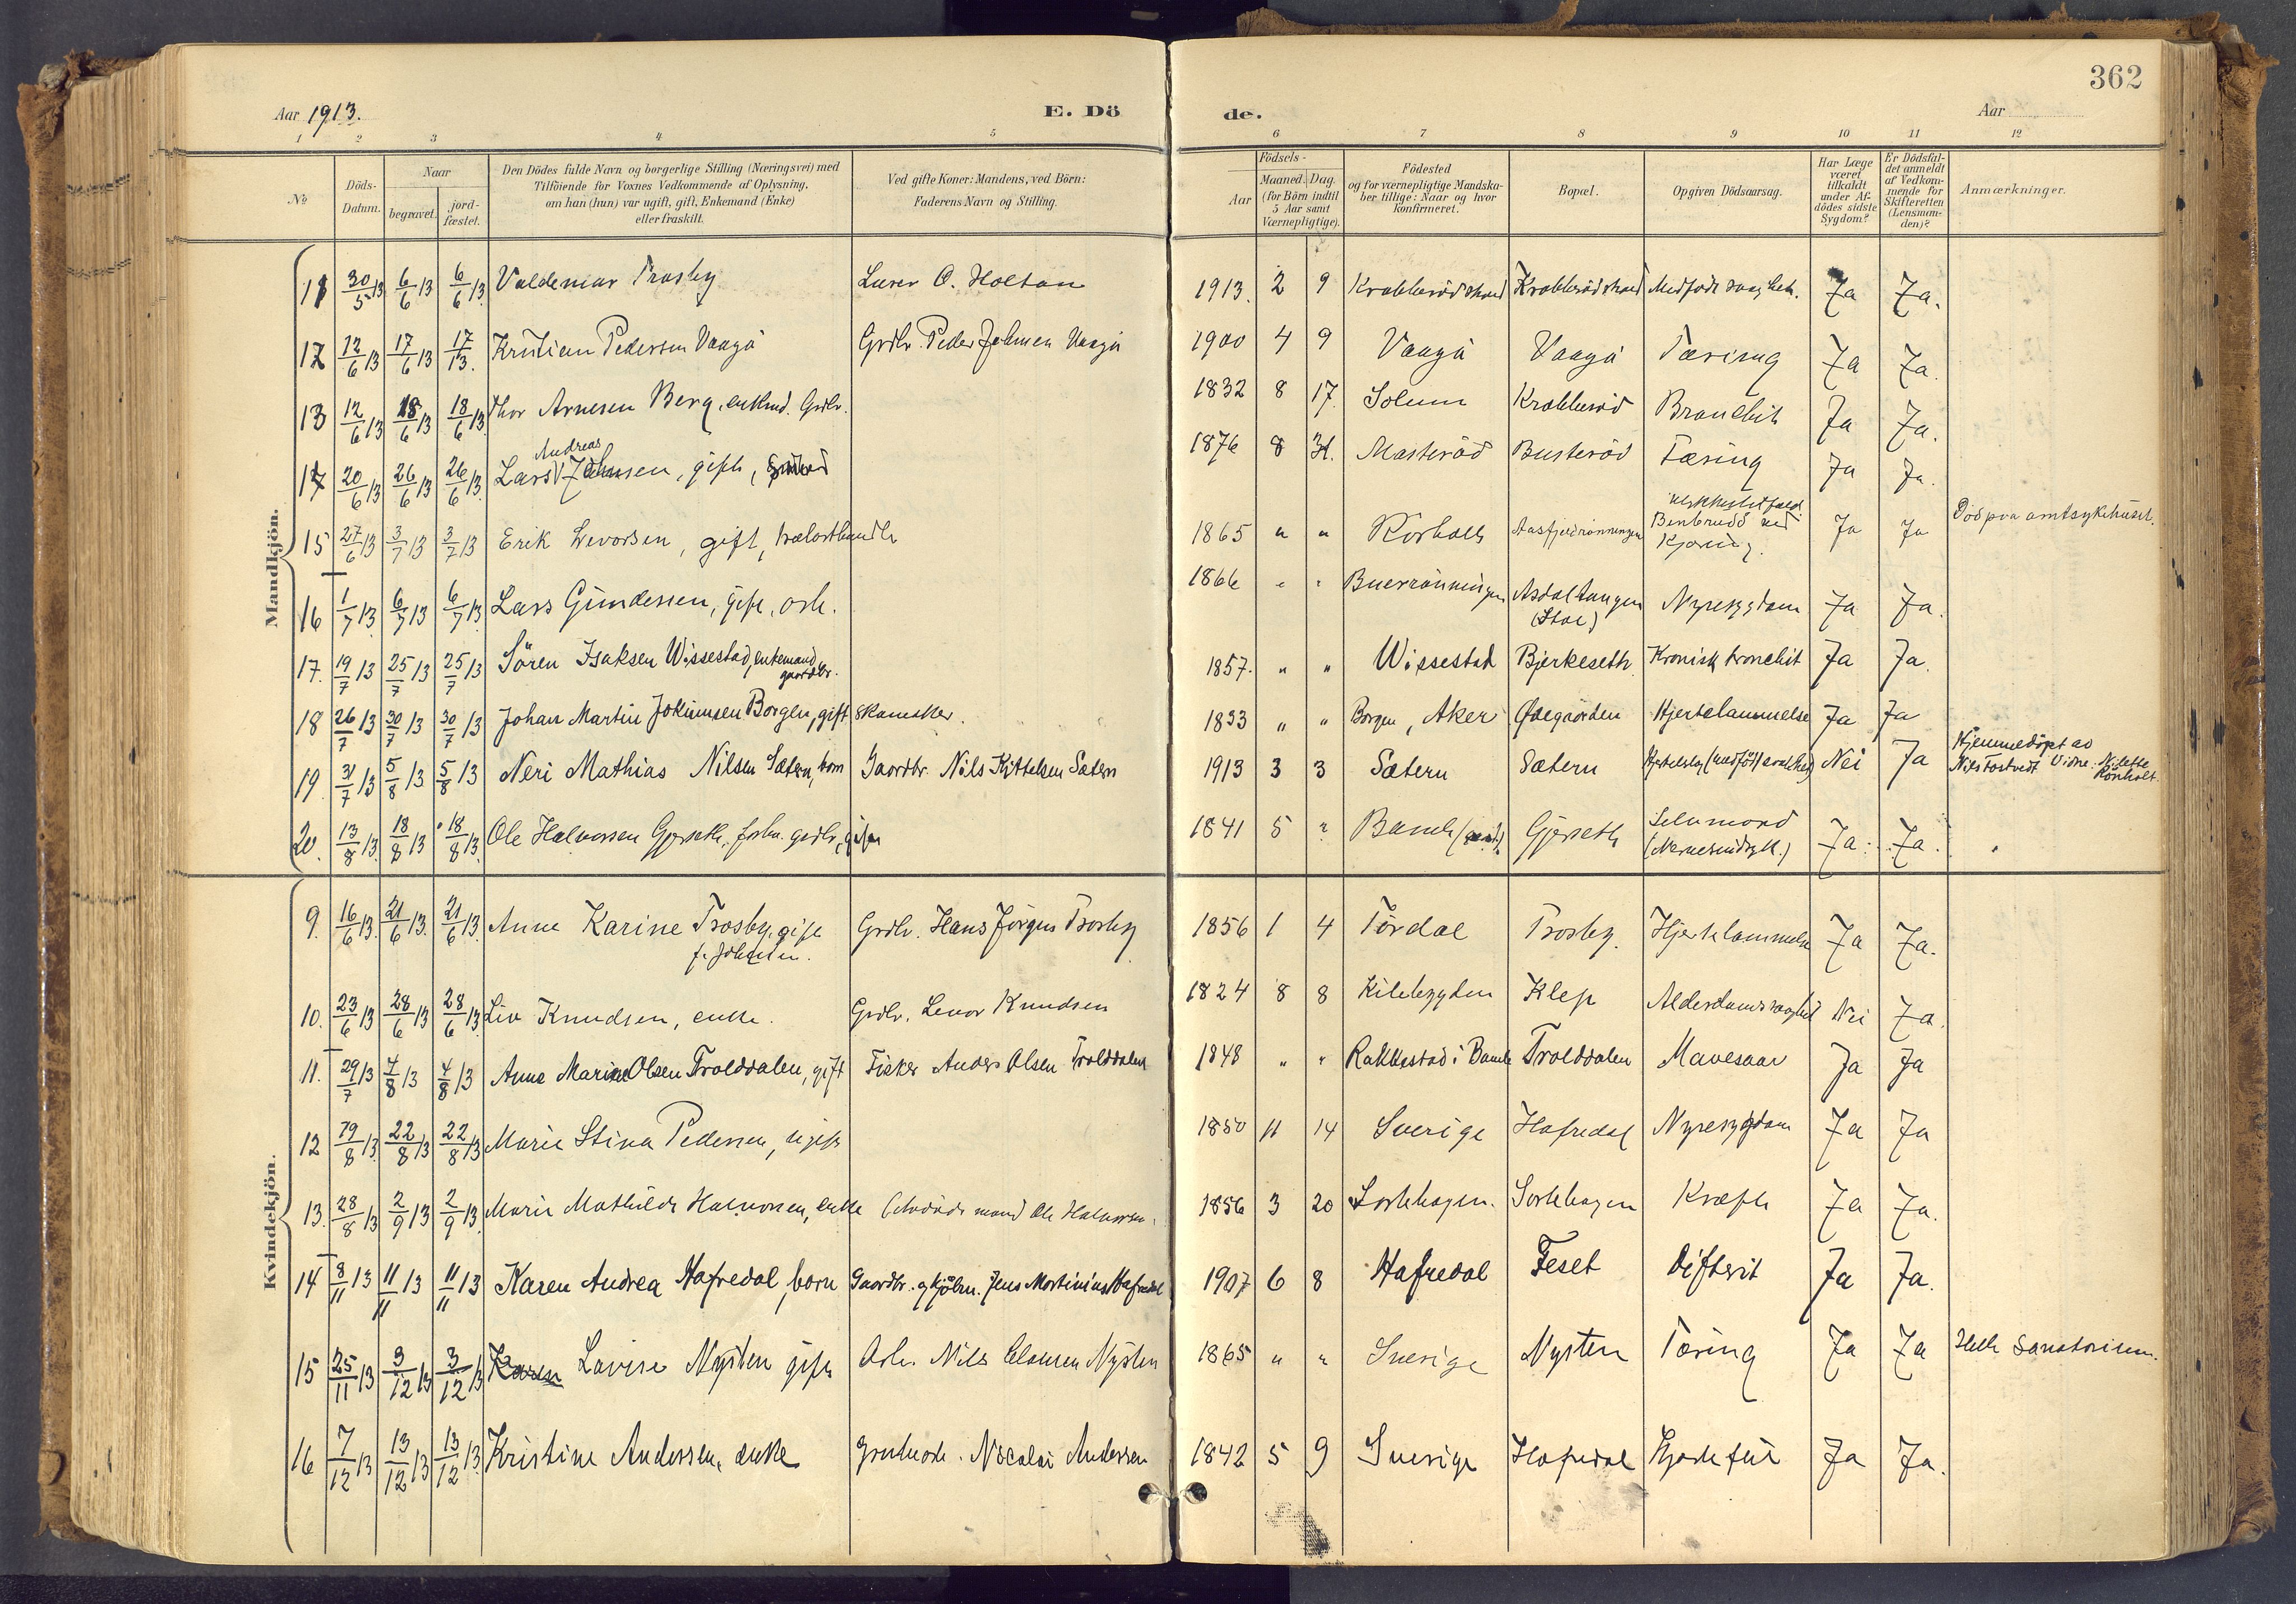 362
Aar 1913. E. Dö de. Aar
1 2 3 4 5 6 7 8 9 10 11 12
No
Döds-Datum.
Naar
begravet. jord-fæstet.
Den Dödes fulde Navn og borgerlige Stilling (Næringsvei) med
Tilföiende for Voxnes Vedkommende af Oplysning,
om han (hun) var ugift, gift, Enkemand (Enke)
eller fraskilt.
Ved gifte Koner: Mandens, ved Börn:
Faderens Navn og Stilling.
Födsels-
Aar Maaned. Dag.
(for Börn indtil
5 Aar samt
Værnepligtige).
Födested
og for værnepligtige Mandska-
ber tillige: Naar og hvor
konfirmeret.
Bopæl.
Opgiven Dödsaarsag.
Har Læge
været
tilkaldt
under Af-
dödes sidste
Sygdom?
Er Dödsfal-
det anmeldt
af Vedkom-
mende for
Skifteretten
(Lensman-
den)?
Anmærkninger.
Mandkjön.
11 30/5 13 6/6 13 6/6 13 Valdemar Trosby O. Holtan 1913. 2 9 Ja Ja.
12 12/6 13 17/6 13 17/13. Kristian Pedersen Vaagö Grdbr. Peder Johnsen Vaagö 1900 4 9 Vaagö Vaagö Tæring Ja Ja.
13 12/6 13 18/6 13 18/6 13 Thor Arnesen Berg, enkmd. Grdbr. 1832 8 17 Solum Krabberöd Bronchit Ja Ja.
Andreas
14 20/6 13 26/6 13 26/6 13 Lars Johnsen, gift, 1876 8 31. Masteröd Busteröd Tæring Ja Ja.
15 27/6 13 3/7 13 3/7 13 Erik Levorsen, gift, trælasthandlr 1865 " " Rörholt Aasfjeldrönningen Benbrudd ved Kjöring. Ja Ja Död paa amtsykehuset.
16 1/7 13 6/7 13 6/7 13 Lars Gundersen, gift, arb. 1866 " " Buerrönningen Asdaltangen (Stol) Nyresygdom Ja Ja.
17. 19/7 13 25/7 13 25/7 13 Sören Isaksen Wissestad, enkemand gaardbr. 1857. " " Wissestad Bjerkeseth Kronisk bronchit Ja Ja.
18 26/7 13 30/7 13 30/7 13 Johan Martin Jokumsen Borgen, gift skomaker. 1833 " " Borgen, Aker Ödegaarden Hjertelammelse Ja Ja
19. 31/7 13 5/8 13 5/8 13 Neri Mathias Nilsen Sætern, barn Gaardbr. Nils Kittelsen Sætern 1913 3 3 Sætern Sætern Nei Ja Hjemmedöpt av Nils Tostvedt Vidne: Nilette Rönholt.
20. 13/8 13 18/8 13 18/8 13 Ole Halvorsen Gjerseth, grdbr, gift 1841 5 " Bamle Gjerseth Selvmord Ja Ja.
Kvindekjön.
9. 16/6 13. 21/6 13. 21/6 13. Anne Karine Trosby, gift f. Johnsen. Grdbr. Hans Jörgen Trosby 1856 1 4 Tördal Trosby. Hjertelammelse Ja Ja.
10. 23/6 13 28/6 13 28/6 13 Liv Knudsen, enke. Grdbr. Levor Knudsen 1824 8 8 Kilebygden Klep Alderdomssvaghed Nei Ja.
11. 29/7 13 4/8 13 4/8 13 Anne Marine Olsen Trolddalen, gift Fisker Anders Olsen Trolddalen 1848 " " Rakkestad i Bamle Trolddalen Mavesaar Ja Ja
12 19/8 13. 22/8 13 22/8 13 Marie Stina Pedersen, ugift 1850 11 14 Sverige Hafredal Nyresygdom Ja Ja
13. 28/8 13 2/9 13 2/9 13. Marie Mathilde Halvorsen, enke (Avdöde mand Ole Halvorsen. 1856 3 20 Sortehagen. Sortehagen Kræft Ja Ja.
14 8/11 13 11/11 13 11/11 13 Karen Andrea Hafredal, barn Gaardbr. og kjöbm. Jens Martinius Hafredal 1907 6 8 Hafredal Feset Difterit Ja Ja.
15 25/11 13 3/12 13 3/12 13 Karen Lovise Nysten gift Arb. Nils Clausen Nysten 1865 " " Sverige Nysten Tæring Ja Ja Helle Sanatorium.
16 7/12 13 13/12 13 13/12 13. Kristine Andersen, enke Grubearb. Nicolai Andersen 1842 5 9 Sverige Hafredal Hjertefeil Ja Ja.